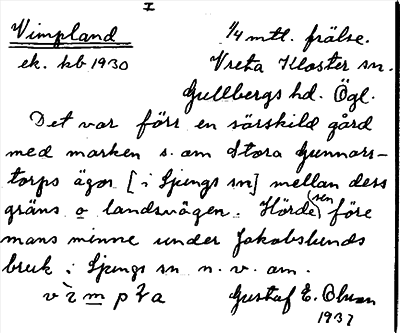 I
Vimpland 1/4 mtl. frälse.
ek. kb 1930 Vreta Kloster sn.
Gullbergs hd. Ögl.
Det var förr en särskild gård
med marken s. om Stora Gunnars-
torps ägor [i Ljungs sn] mellan dess
gräns o landsvägen. Hörde (sen) före
mans minne under Jakobslunds
bruk i Ljungs sn n. v. om.
Gustaf E. Olsson
1937